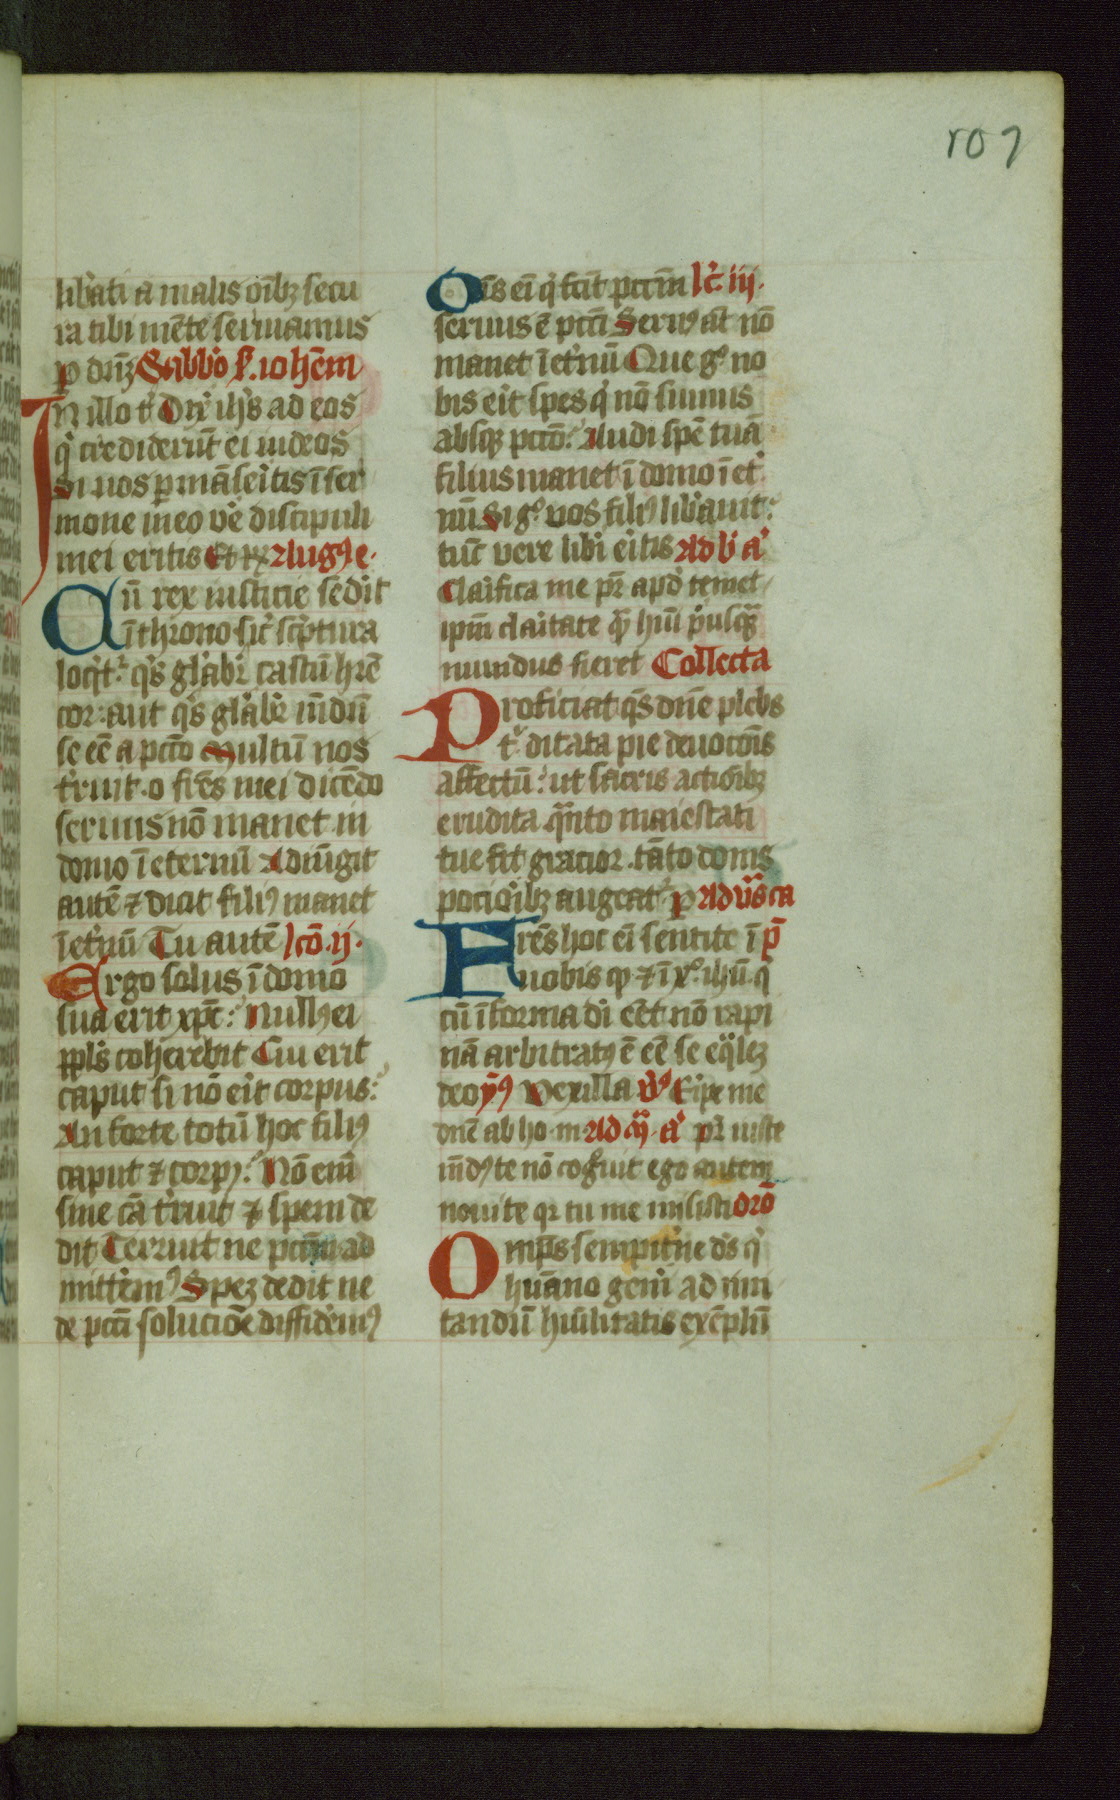 107
lib'ati a malis oı̄bꝫ secu
ra tibi mēte seruiamus
p dn̄ꝫ Sabb̄o ſ. ioh̄em
In illo t' Dix' ih̄s ad eos
q' crediderūt ei iudeos
Si vos pmāse'itis ī ser
mone meo ve' discipuli
mei eritis Et r̄ Augꝯ e.
Cū rex iusticie sed'it
ī throno sic' sc'ptura
loq't' q's gl'abi' castū h̄re
cor aut q's gl'abi' mūdū
se eē a pcc̄o Multū nos
t'ruit. o fr̄es mei dicēdo
seruus nō manet in
domo ī eternū Adiūgit
autē ⁊ dicit filiꝯ manet
ī et'nū Tu autē lcō. ij.
Ergo solus ī domo
sua erit xp̄c: Nullꝯ ei
ppl's coherebit Cui erit
caput si nō e'it corpus:
An forte totū hoc filiꝯ
caput ⁊ corpꝯ: Nō em̄
sine cā t'ruit ⁊ spem de
dit Terruit ne pcc̄m ad
mittem'ꝯ Spēꝫ dedit ne
de pcc̄i solucōe diffidem'ꝯ
Oīs ei q' fcit pcc̄m lc̄ iij.
seruus ē pcc̄i Seruꝯ at nō
manet ī et'nū Que g° no
bis e'it spes q' nō sumus
absqꝫ pcc̄o: Audi spē tuā
filius manet ī domo ī et'
nū Si g° vos filiꝯ lib'auit:
tūc vere lib'i e'itis Ad b' a'
Cla'ifica me pr̄ apd' temet
ipm̄ cla'itate q̄ hui' p'usq̄
mundus fieret Collecta
Proficiat q̄s dn̄e plebs
t' ditata pie deuocōis
affectū: ut sacris actiōibꝫ
erudita q̄nto maiestati
tue fit gracior tāto donis
pocio'ibꝫ augeat' p Ad v̄as ca
Frēs hoc ei sentite ī p̄
uobis qꝫ ⁊ ī x° ih̄u q'
cū ī forma di' eēt nō rapi
nā arbitratꝯ ē eē se eq̄leꝫ
deo ȳꝯ Vexilla v̄s Eripe me
dn̄e ab ho. m Ad m̄. a' pr̄ iuste
mūdꝯ te nō cog'uit ego autem
noui te qr tu me misisti Orō
Omp̄s sempit'ne ds̄ q'
humāno gen'i ad imi
tandū hūilitatis exēplū